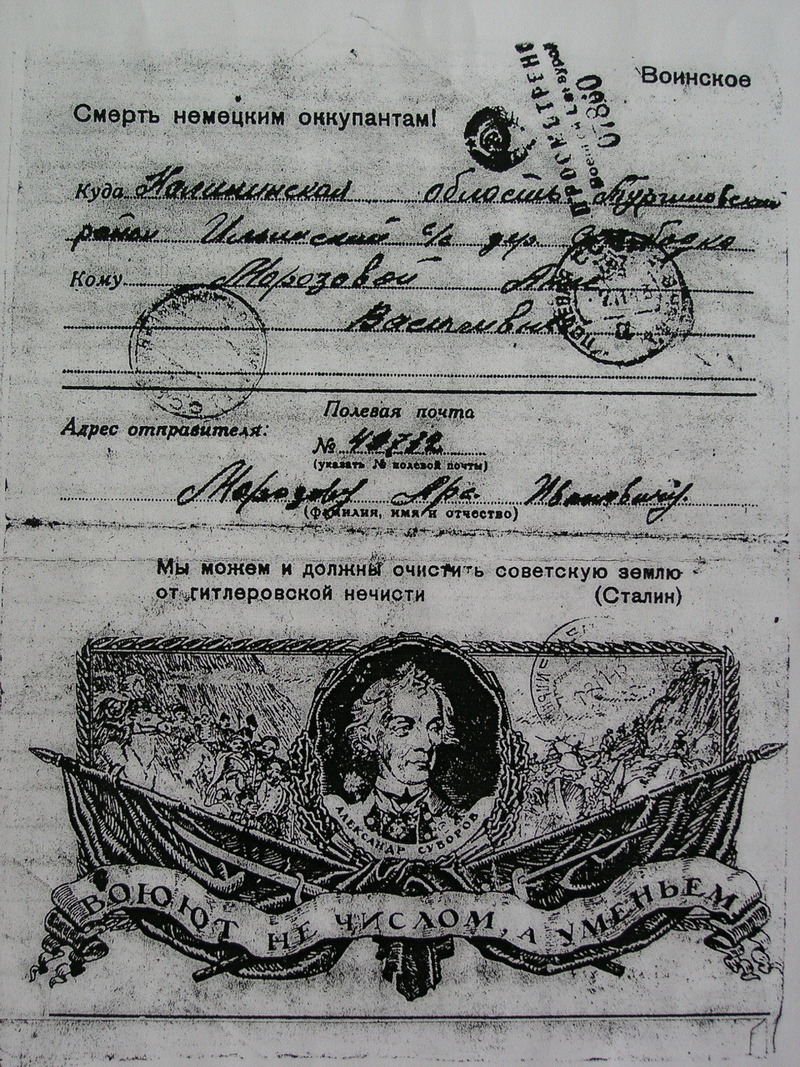 Воинское
Смерть немецким оккупантам!
ПРОСМОТРЕНО
Военной Цензурой
07860
Куда Калининская область Тургиновский
район Ильинский с/с дер.
Кому Морозовой Анне
Васильевне
Полевая почта
Адрес отправителя:
№ 40732
(указать № полевой почты)
Морозову Ивановичу.
(фамилия, имя и отчество)
Мы можем и должны очистить советскую землю
от гитлеровской нечисти (Сталин)
АЛЕКСАНДР СУВОРОВ
ВОЮЮТ НЕ ЧИСЛОМ, А УМЕНЬЕМ